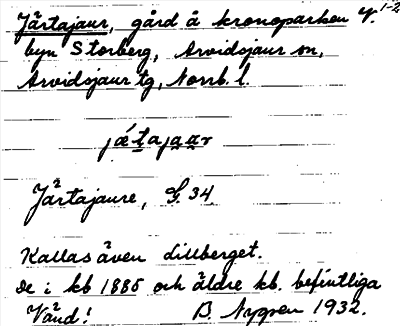 Järtajaur, gård å kronoparken V. 1-2
byn Storberg, Arvidsjaur sn,
Arvidsjaur tg, Norrb. l.
jǽtajaar
Järtajaure, G. 34.
Kallas även Lillberget.
De i kb 1885 och äldre kb. befintliga
Vänd! B. Nygren 1932.